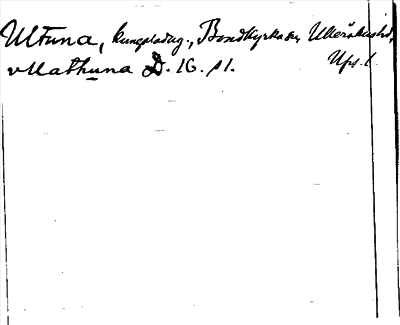 Ultuna, kungsladug., Bondkyrka sn, Ulleråkers hd,
Ups. l.
vllathuna D. 16. s1.